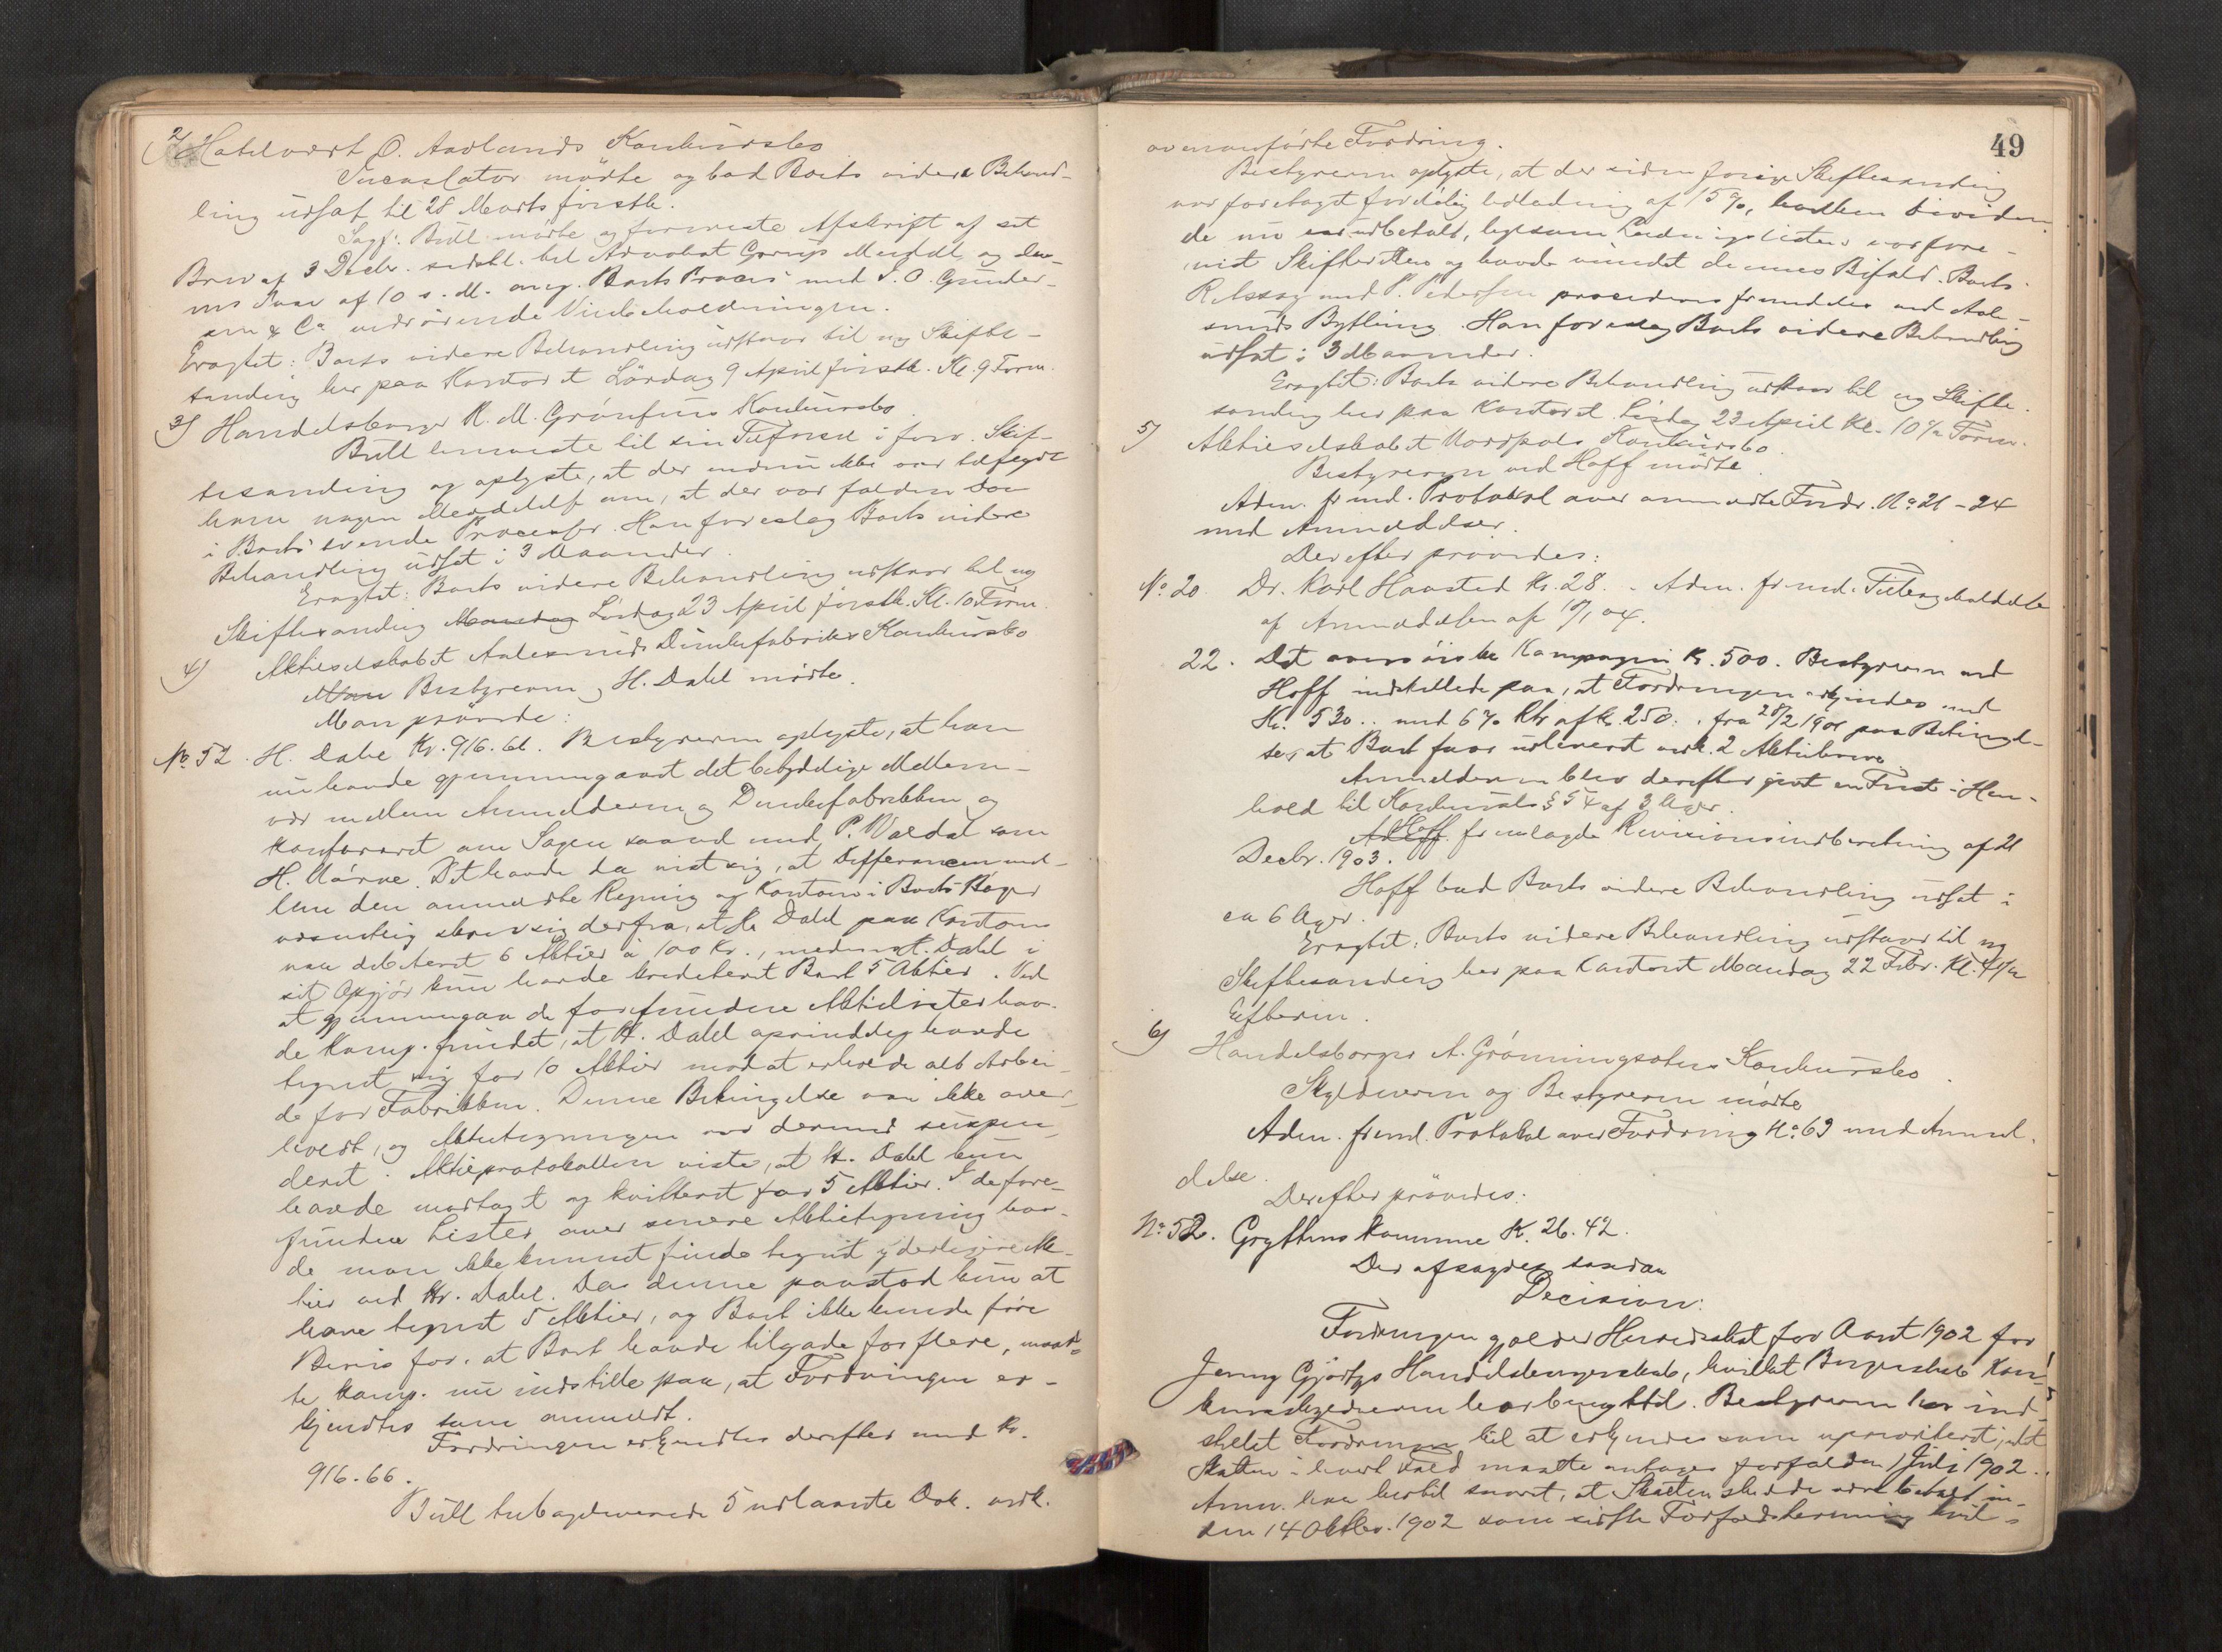 2) Hotelvært O. Aarlands Konkursbo
Incassator mødte og bad Boets videre Behand-
ling udsat til 28 Marts førstk.
Sagf. Bull mødte og foreviste Afskrift af sit
Brev af 3 Decbr. sidstl. til Advokat Garup Meidell og den-
nes Svar af 10 s. M. ang. Boets Proces med J. O. Gunder-
sen & Co vedrørende Vinbeholdningen.
Eragtet: Boets videre Behandling udstaar til ny Skifte-
samling her paa Kontoret Lørdag 9 April førstk. Kl. 9 Form.
3) Handelsborger K. M. Grønfurs Konkursbo.
Bull henviste til sin Tilførsel i forr. Skif-
tesamling og oplyste, at der endnu ikke var tilflydt
ham nogen Meddelelse om, at der var falden Dom
i Boets svende Processer. Han foreslog Boets videre
Behandling udsat i 3 Maaneder.
Eragtet: Boets videre Behandling udstaar til ny
Skiftesamling Mandag Lørdag 23 April førstk. Kl. 10 Form.
4) Aktieselskabet Aalesunds Dunkefabriks Konkursbo
Man Bestyreren, H. Dahl mødte.
Man prøvede:
No 52. H. Dahl Kr. 916.66. Bestyreren oplyste, at han
nu havde gjennemgaaet det betydelige Mellem-
vær mellem Anmelderen og Dunkefabrikken og
konfereret om Sagen saavel med P. Valdal som
H. Nørve. Det havde da vist sig, at Differancen mel-
lem den anmeldte Regning og Kontoen i Boets Bøger
væsentlig skrev sig derfra, at Hr Dahl paa Kontoen
var debiteret 6 Aktier à 100 Kr., medens H. Dahl i
sit Opgjør kun havde krediteret Boet 5 Aktier. Ved
at gjennemgaa de forefundne Aktielister hav-
de Komp. fundet, at H. Dahl oprindelig havde
tegnet sig for 10 Aktier mod at erholde alt Arbei-
de for Fabrikken. Denne Betingelse var ikke over-
holdt, og Aktietegningen var dermed suspen-
deret. Aktieprotokollen viste, at H. Dahl kun
havde modtaget og kvitteret for 5 Aktier. I de fore-
fundne Lister over senere Aktietegning hav-
de man ikke kunnet finde tegnet yderligere Ak-
tier ved Hr. Dahl. Da denne paastod kun at
have tegnet 5 Aktier, og Boet ikke kunde føre
Bevis for, at Boet havde tilgode for flere, maat-
te Komp. nu indstille paa, at Fordringen er-
kjendtes som anmeldt.
Fordringen erkjendtes derefter med Kr.
916.66.
Bull tilbageleverede 5 udlaante Dok. vedk.
49
ovenanførte Fordring.
Bestyreren oplyste, at der siden forrige Skiftesamling
var foretaget foreløbig Udlodning af 15 %, hvilken Dividen-
de nu var udbetalt, ligesom Lodningslisten var fore-
vist Skifteretten og havde vundet dennes Bifald. Boets
Retssag med P. Pedersen procederes fremdeles ved Aale-
sunds Bything. Han foreslog Boets videre Behandling
udsat i 3 Maaneder.
Eragtet: Boets videre Behandling udstaar til ny Skifte-
samling her paa Kontoret Lørdag 23 April Kl. 10½ Form.
5) Aktieselskabet Nordpols Konkursbo.
Bestyreren ved Hoff mødte.
Adm. freml. Protokol over anmeldte Fordr. No 21-24
med Anmeldelser.
Derefter prøvedes:
No 20. Dr. Karl Haasted Kr. 28. . Adm. freml. Tilbagekaldelse
af Anmeldelsen af 10/1 04.
22. Det oversøiske Kompagni Kr. 500. Bestyreren ved
Hoff indstillede paa, at Fordringen erkjendes med
Kr. 530.. med 6% Rte af Kr. 250: . fra 28/2 1901 paa Betingel-
se, at Boet faar udleveret vedk. 2 Aktiebreve.
Anmelderen blev derefter givet en Frist i Hen-
hold til Konkursls § 54 af 3 Uger.
Adm Hoff fremlagde Revisionsindberetning af 21
Decbr. 1903.
Hoff bad Boets videre Behandling udsat i
ca 6 Uger.
Eragtet: Boets videre Behandling udstaar til ny
Skiftesamling her paa Kontoret Mandag 22 Febr. Kl. 4½
Efterm.
6) Handelsborger A. Grønningsæters Konkursbo.
Skyldneren og Bestyreren mødte
Adm. freml. Protokol over Fordring No 69 med Anmel-
delse.
Derefter prøvedes:
No 52. Gryttens Kommune K. 26.42.
Der afsagdes saadan
Decision:
Fordringen gjælder Herredsskat for Aaret 1902 for
Jenny Gjørtzs Handelsborgerskab, hvilket Borgerskab Kon-
kursskyldneren har benyttet. Bestyreren har ind-
stillet Fordringen til at erkjendes som uprioriteret, idet
Skatten i hvert Fald maatte antages forfalden 1 Juli 1902.
Anm. har hertil svaret, at Skatten skulde være betalt in-
den 14 Oktbr. 1902 som sidste Forfaldstermin, hvil-